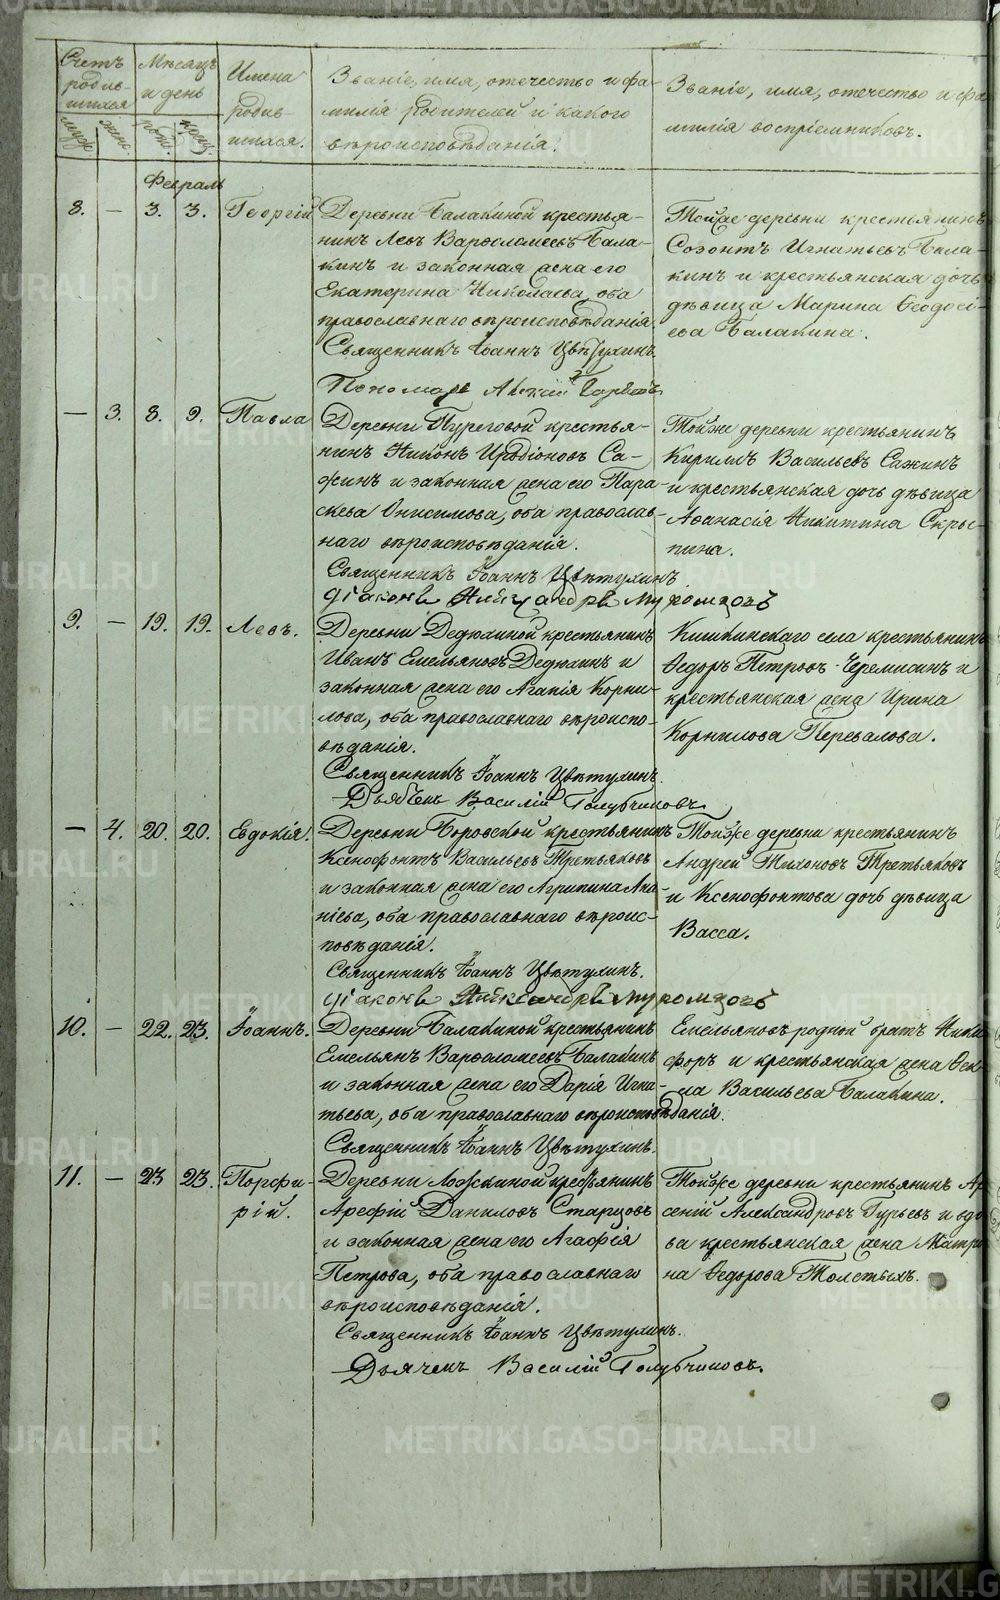 METRIKI.GASO-URAL.RU
Счетъ родив-шихся
муж.
женс.
Мѣсяцъ и день
рожд.
крещ.
Имена родив-шихся.
Званіе, имя, отечество и фа-
милія родителей и какого
вѣроисповѣданія.
Званіе, имя, отечество и фа-
милія воспріемниковъ.
Февраль
8. — 3. 3. Георгій
Деревни Балакиной крестья-
нинъ Левъ Варѳоломеевъ Бала-
кинъ и законная жена его
Екатерина Николаева, оба
православнаго вѣроисповѣданія.
Священникъ Іоаннъ Цвѣтухинъ.
Пономарь
Тойже деревни крестьянинъ
Созонтъ Игнатьевъ Бала-
кинъ и крестьянская дочь
дѣвица Марина Ѳеодосі-
ева Балакина.
— 3. 8. 9. Павла
Деревни Пуреговой крестья-
нинъ Никонъ Иродіоновъ Са-
жинъ и законная жена его Пара-
скева Онисимова, оба православ-
наго вѣроисповѣданія.
Священникъ Іоаннъ Цвѣтухинъ.
Діаконъ Александръ Муромцовъ
Тойже деревни крестьянинъ
Кириллъ Васильевъ Сажинъ
и крестьянская дочь дѣвица
Аѳанасія Никитина Скры-
пина.
9. — 19. 19. Левъ.
Деревни Дедюхиной крестьянинъ
Иванъ Емельяновъ Дедюхинъ и
законная жена его Агапія Корни-
лова, оба православнаго вѣроиспо-
вѣданія.
Священникъ Іоаннъ Цвѣтухинъ.
Дьячекъ Василій Голубчиковъ
Кишкинскаго села крестьянинъ
Ѳедоръ Петровъ Черемисинъ и
крестьянская жена Ирина
Корнилова Перевалова.
— 4. 20. 20. Евдокія.
Деревни Боровской крестьянинъ
Ксенофонтъ Васильевъ Третьяковъ
и законная жена его Агрипина Ана-
ніева, оба православнаго вѣроис-
повѣданія.
Священникъ Іоаннъ Цвѣтухинъ.
Діаконъ Александръ Муромцовъ
Тойже деревни крестьянинъ
Андрей Тихоновъ Третьяковъ
и Ксенофонтова дочь дѣвица
Васса.
10. — 22. 23. Іоаннъ.
Деревни Балакиной крестьянинъ
Емельянъ Варѳоломеевъ Балакинъ
и законная жена его Дарія Игна-
тьева, оба православнаго вѣроисповѣданія.
Священникъ Іоаннъ Цвѣтухинъ.
Емельяновъ родной братъ Ники-
форъ и крестьянская жена Ѳек-
ла Васильева Балакина.
11. — 23 23. Порфи-
рій.
Деревни Ложкиной крестьянинъ
Арефій Даниловъ Старцовъ
и законная жена его Агафія
Петрова, оба православнаго
вѣроисповѣданія.
Священникъ Іоаннъ Цвѣтухинъ.
Дьячекъ Василій Голубчиковъ.
Тойже деревни крестьянинъ Ар-
сеній Александровъ Гурьевъ и вдо-
ва крестьянская жена Матре-
на Ѳедорова Толстыхъ.